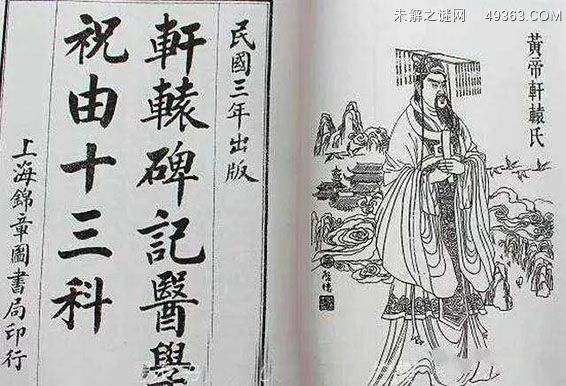 未解之谜网 49363.COM/
黃帝軒轅氏
民國三年出版
軒轅碑記醫學
祝由十三科
上海錦章圖書局印行